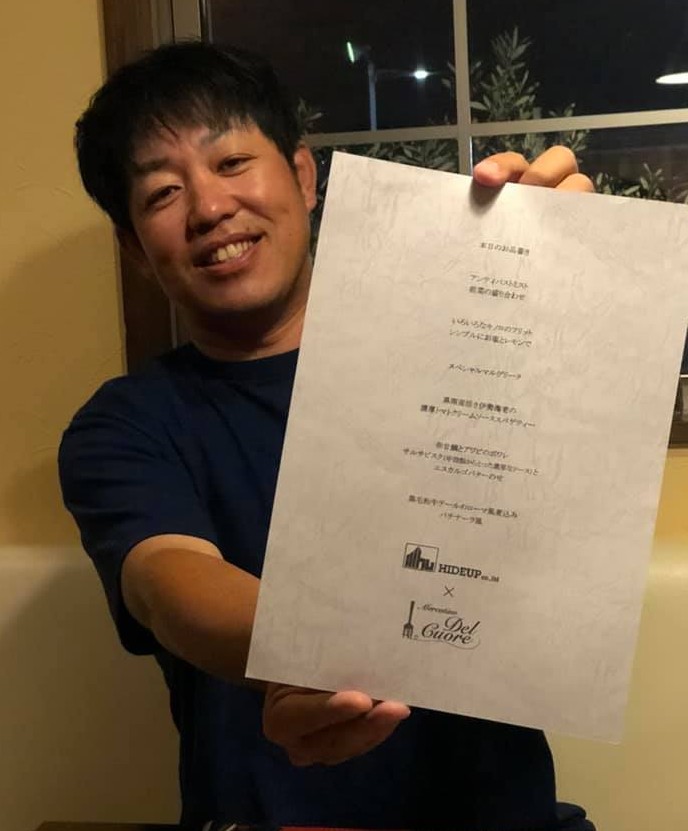 本日のお品書き
アンティパストミスト
前菜の盛り合わせ
いろいろなキノコのフリット
シンプルにお塩とレモンで
スペシャルマルゲリータ
伊勢海老の
濃厚トマトクリームソーススパゲティー
鯛とアワビのポワレ
エスカルゴバターのせ
黒毛和牛テールのローマ風煮込み
バチナーラ風
HIDEUP co.,ltd
×
Mercatino
Del
Cuore